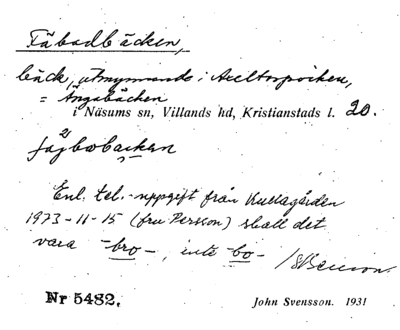 Täbodbäcken,
bäck, utmynnande i Axeltorpsviken,
= Ängabäcken
i Näsums sn, Villands hd, Kristianstads l. 20.
Enl. tel.-uppgift från Kullagården
1973-11-15 (fru Persson) skall det
vara -bro-, inte -bo-
Nr 5482.
John Svensson. 1931